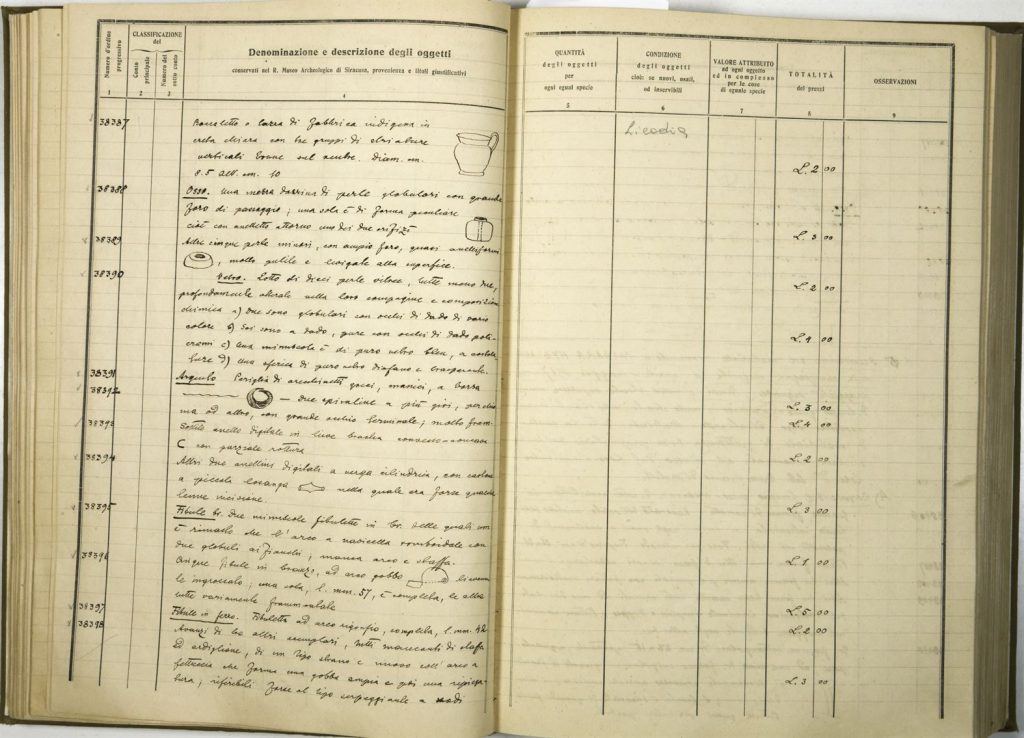 Numero d'ordine progressivo
CLASSIFICAZIONE del
Conto principale
Numero del sotto conto
Denominazione e descrizione degli oggetti
conservati nel R. Museo Archeologico di Siracusa, provenienza e titoli giustificativi
1 2 3 4
38387 Boccaletto o tazza di fabbrica indigena in
creta chiara con tre gruppi di striature
verticali brune sul ventre. Diam. cm.
8.5 alt. cm. 10
38388 Osso. Una mezza dozzina di perle globulari con grande
foro di passaggio; una sola è di forma peculiare
cioè con anelletto attorno uno dei due orifizi
38389 Altre cinque perle minori, con ampio foro, quasi anelliformi
, molto pulite e levigate alla superfice.
38390 Vetro. Lotto di dieci perle vitree, tutte
profondamente alterate nella loro compagine e composizione
chimica a) due sono globulari con occhi di dado di vario
colore b) sei sono a dado, pure con occhi di dado poli-
cromi c) una minuscola è di puro vetro bleu, a costola-
ture d) una sferica di puro vetro diafano e trasparente.
38391 Argento. orecchinetti
38392 — due spiraline a più giri,
ma ad altro, con grande occhio terminale; molto fram.
38393 Sottile anello digitale in
C con parziale rottura
38394 Altri due anellini digitali a verga cilindrica, con castone
a piccola losanga nella quale era forse qualche
lieve incisione.
38395 Fibule br. Due minuscole fibulette in br. delle quali non
è rimasto che l'arco a navicella romboidale con
due globuli ai fianchi; manca arco e staffa.
38396 Cinque fibule in bronzo, ad arco gobbo lievemen-
te ingrossato; una sola, l. mm. 57, è completa, le altre
tutte variamente frammentate
38397 Fibule in ferro. Fibuletta ad arco rigonfio, completa, l. mm. 42
38398 Avanzi di tre altri esemplari, tutti mancanti di staffa
ed ardiglione, di un tipo strano e nuovo coll'arco a
fettuccia che forma una gobba ampia e poi una ripiega-
tura; riferibili forse al tipo serpeggiante a
QUANTITÀ degli oggetti per ogni egual specie
CONDIZIONE degli oggetti cioè: se nuovi, usati, od inservibili
VALORE ATTRIBUITO ad ogni oggetto ed in complesso per le cose di eguale specie
TOTALITÀ dei prezzi
OSSERVAZIONI
5 6 7 8 9
Licodia
L. 2 00
L. 3 00
L. 2 00
L. 4 00
L. 3 00
L. 4 00
L. 2 00
L. 3 00
L. 1 00
L. 5 00
L. 2 00
L. 3 00